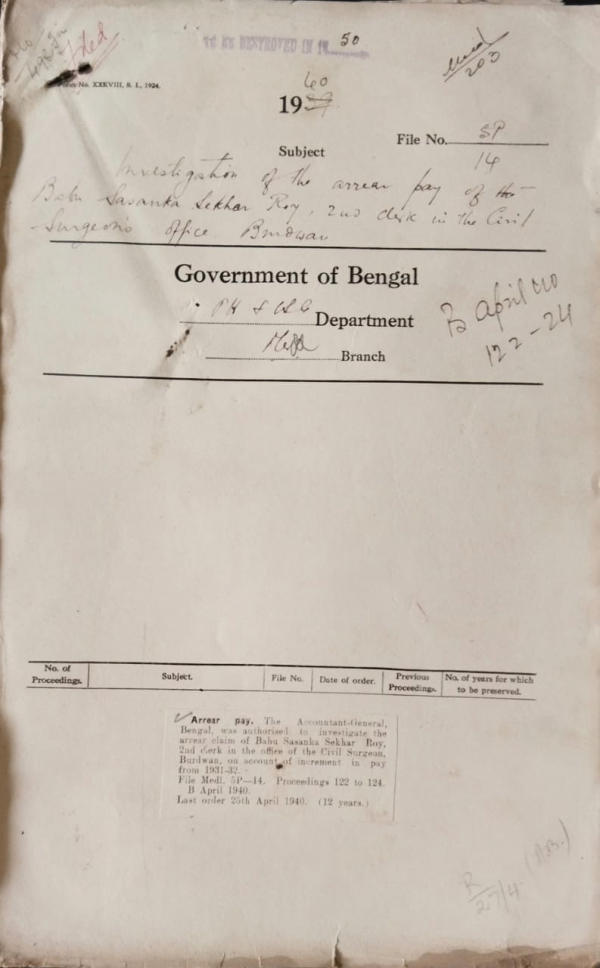 TO BE DESTROYED IN 19 50
Medl
203
Form No. XXXVIII, S. I., 1924.
1940
File No. 5P
14
Subject
Investigation of the arrear pay of
Babu Sasanka Sekhar Roy, 2nd clerk in the Civil
Surgeon's office Burdwan
Government of Bengal
PH & LSG Department
Medl Branch
B April 40
122-24
No. of Proceedings. Subject. File No. Date of order. Previous Proceedings. No. of years for which to be preserved.
Arrear pay. The Accountant-General,
Bengal, was authorised to investigate the
arrear claim of Babu Sasanka Sekhar Roy,
2nd clerk in the office of the Civil Surgeon,
Burdwan, on account of increment in pay
from 1931-32.
File Medl. 5P—14. Proceedings 122 to 124.
B April 1940.
Last order 25th April 1940. (12 years.)
R
27/4